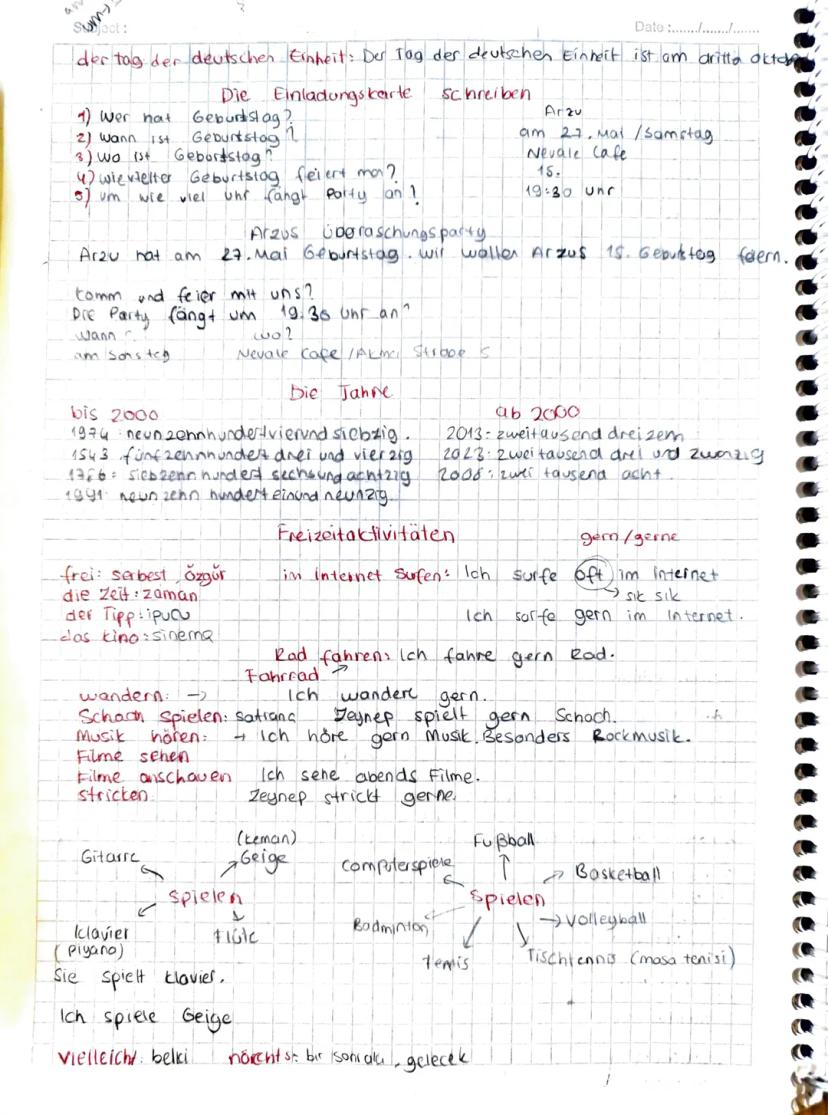 Subject:
Date:....../....../......
der tag der deutschen Einheit: Der Tag der deutschen Einheit ist am dritta Oktober
Die Einladungskarte schreiben
1) Wer hat Geburtstag?
Arzu
2) Wann ist Geburtstag?
am 27. Mai /Samstag
3) Wo ist Gebortstag?
Nevale Cafe
4) wievielter Geburtstag feiert man?
15.
5) um wie viel Uhr fängt Party an?
19:30 Uhr
Arzus überaschungsparty
Arzu hat am 27. Mai Geburtstag. wir wollen Arzus 15. Gebuktag feiern.
komm und feier mit uns?
Die Party fängt um 19:30 Uhr an?
wann?
wo?
am
Nevale Cafe /
5
Die Jahre
bis 2000
ab 2000
1974: neunzehnhundertvierund siebzig.
2013: zweitausend dreizern
1543 fünfzehnhundert drei und vierzig
2023: zweitausend drei und zwanzig
siebzehn hundert sechsundachtzig
2008: zwei tausend acht.
1991: neun zehn hundert einund neunzig
Freizeitaktivitäten
gern/gerne
frei: serbest, özgür
im internet surfen: Ich surfe oft im internet
die Zeit: zaman
sık sık
der Tipp: ipucu
Ich sorfe gern im Internet.
das Kino: sinema
Rad fahren: Ich fahre gern Rad.
Fahrrad
wandern: →
Ich wandere gern.
Schach spielen: satranç Zeynep spielt gern Schach.
Musik hören: → Ich höre gern Musik. Besonders Rockmusik.
Filme sehen
Filme anschauen Ich sehe abends Filme.
stricken Zeynep strickt gerne.
Gitarre
(keman)
Geige
spielen
Klavier
(piyano)
Flöte
Fußball
Computerspiele
Basketball
spielen
Volleyball
Badminton
Tennis
Tischtennis (masa tenisi)
Sie spielt klavier.
Ich spiele Geige
vielleicht: belki
bir sonraki, gelecek